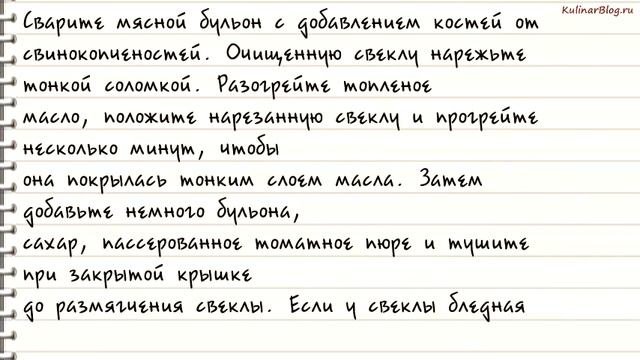 KulinarBlog.ru
Сварите мясной бульон с добавлением костей от
свинокопченостей. Очищенную свеклу нарежьте
тонкой соломкой. Разогрейте топленое
масло, положите нарезанную свеклу и прогрейте
несколько минут, чтобы
она покрылась тонким слоем масла. Затем
добавьте немного бульона,
сахар, пассерованное томатное пюре и тушите
при закрытой крышке
до размягчения свеклы. Если у свеклы бледная